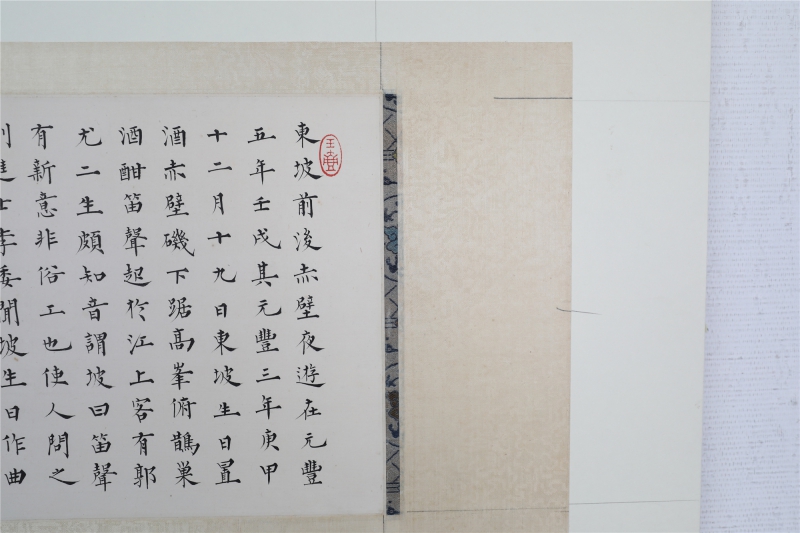 東坡前後赤壁夜遊在元豐
五年壬戌其元豐三年庚甲
十二月十九日東坡生日置
酒赤壁磯下踞高峯俯鵲巢
酒酣笛聲起於江上客有郭
尤二生頗知音謂坡曰笛聲
有新意非俗工也使人問之
則進士李委聞坡生日作曲